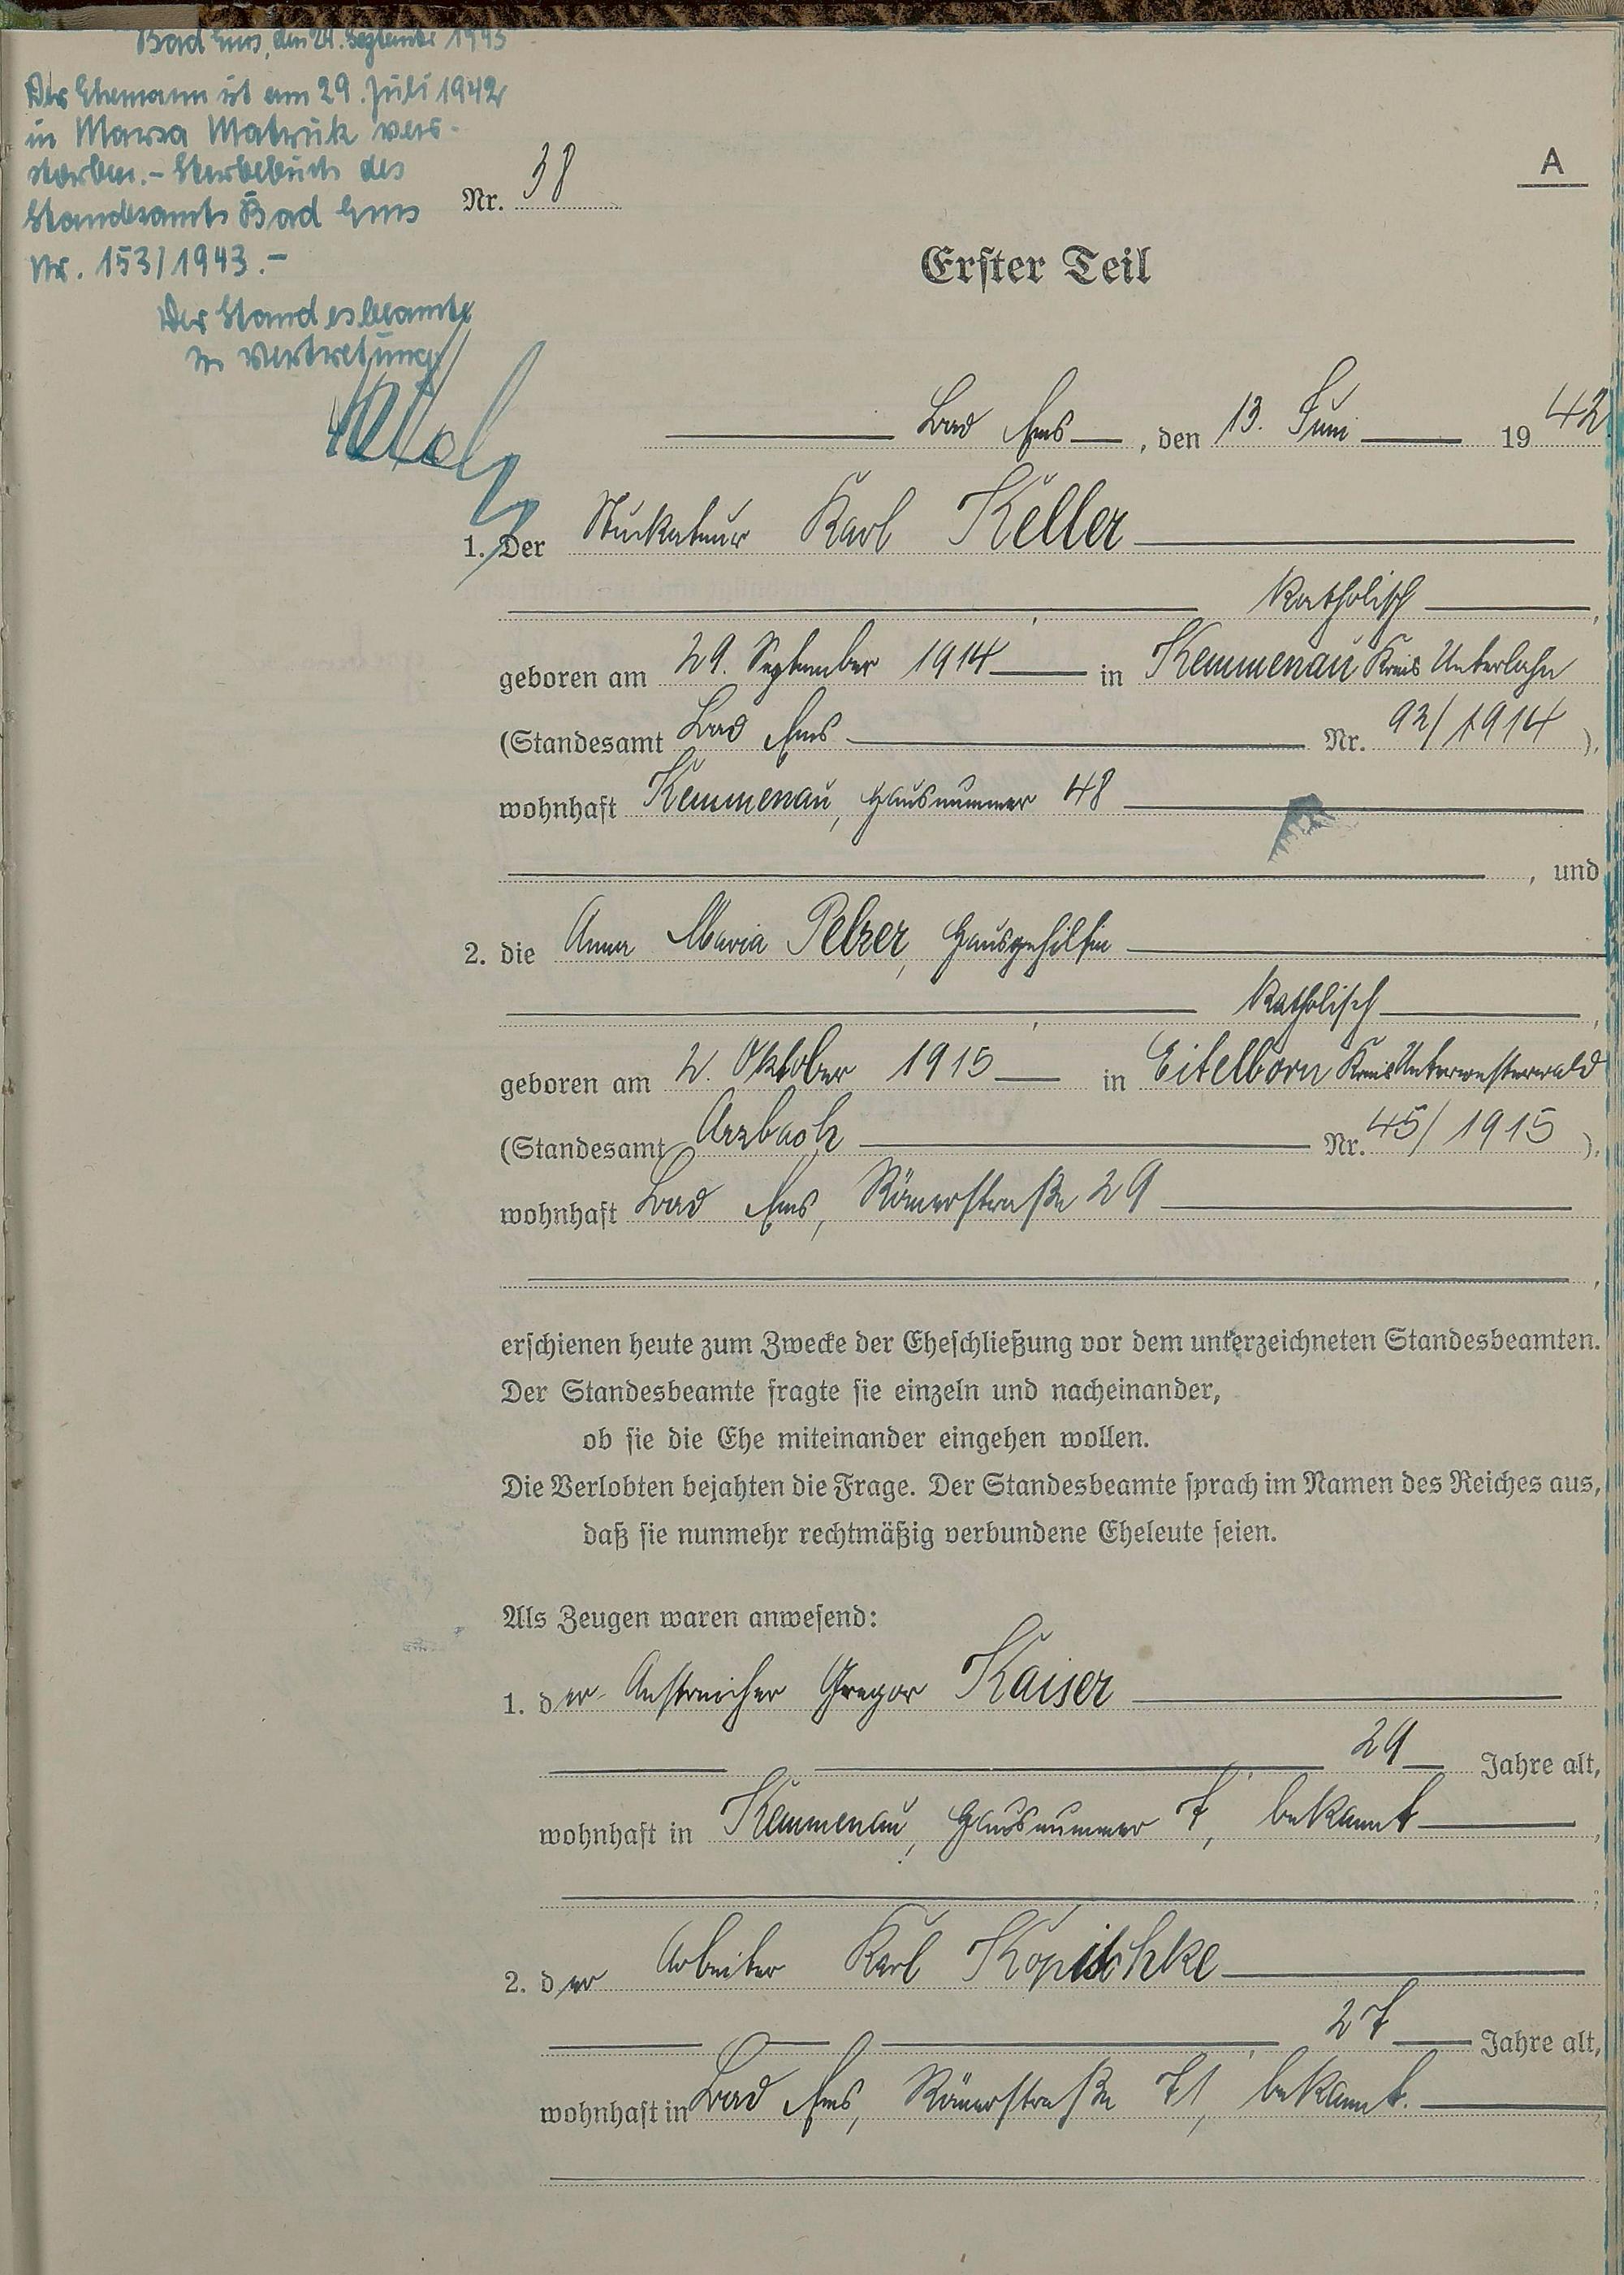 Bad Ems, den 24. September 1943
Der Ehemann ist am 29. Juli 1942
in Marsa Matruk ver-
storben. - Sterbebuch des
Standesamts Bad Ems
Nr. 153/1943. -
Der Standesbeamte
In Vertretung
A
Nr. 38
Erster Teil
Bad Ems, den 13. Juni 1942
1. Der Stuckateur Karl Keller
, katholisch,
geboren am 29. September 1914 in Kemmenau Kreis Unterlahn
(Standesamt Bad Ems Nr. 92/1914).
wohnhaft Kemmenau, Hausnummer 48
, und
2. die Anna Maria Pelzer, Hausgehilfin
, katholisch,
geboren am 2. Oktober 1915 in Eitelborn Kreis Unterwesterwald
(Standesamt Arzbach Nr. 45/1915).
wohnhaft Bad Ems, Römerstraße 29
,
erschienen heute zum Zwecke der Eheschließung vor dem unterzeichneten Standesbeamten.
Der Standesbeamte fragte sie einzeln und nacheinander,
ob sie die Ehe miteinander eingehen wollen.
Die Verlobten bejahten die Frage. Der Standesbeamte sprach im Namen des Reiches aus,
daß sie nunmehr rechtmäßig verbundene Eheleute seien.
Als Zeugen waren anwesend:
1. der Anstreicher Gregor Kaiser
, 29 Jahre alt,
wohnhaft in Kemmenau, Hausnummer 7, bekannt,
;
2. der Arbeiter Karl Kopischke
, 27 Jahre alt,
wohnhaft in Bad Ems, Römerstraße 71, bekannt.